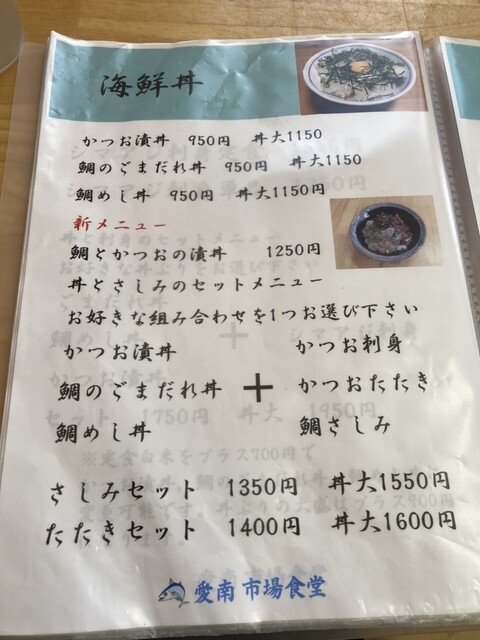 海鮮丼
かつお漬丼 950円 丼大1150
鯛のごまだれ丼 950円 丼大1150
鯛めし丼 950円 丼大1150円
新メニュー
鯛とかつおの漬丼 1250円
丼とさしみのセットメニュー
お好きな組み合わせを1つお選び下さい
かつお漬丼 かつお刺身
鯛のごまだれ丼 + かつおたたき
鯛めし丼 鯛さしみ
さしみセット 1350円 丼大1550円
たたきセット 1400円 丼大1600円
愛南市場食堂